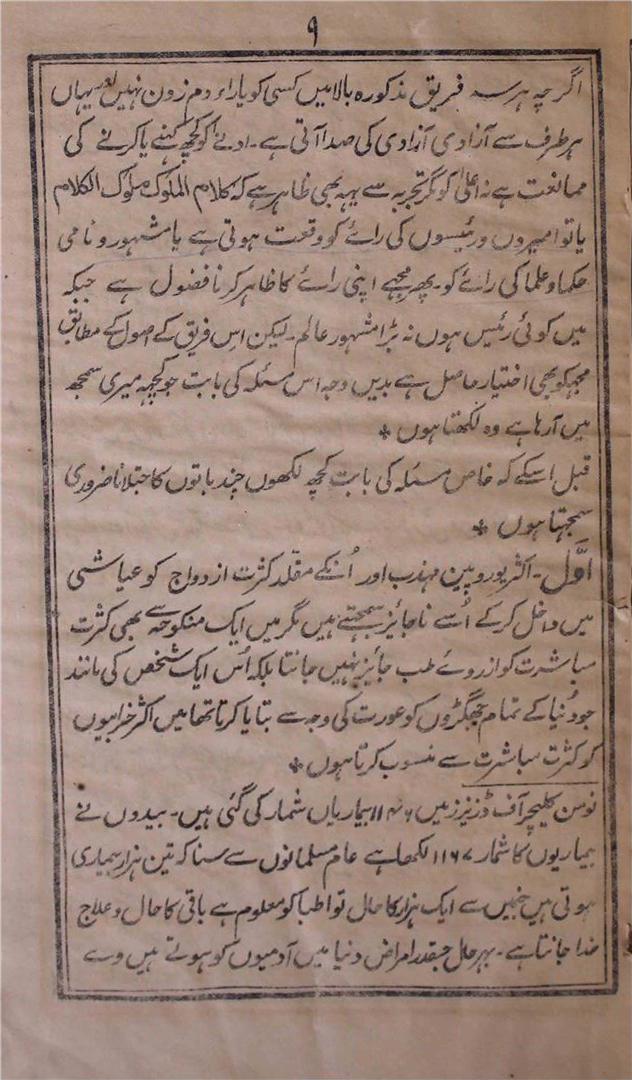 ۹
اگرچہ ہر سہ فریق مذکورہ بالا میں کسی کو یاراء دم زدن نہیں اور یہاں
ہر طرف سے آزادی آزادی کی صدا آتی ہے۔ ادنےٰ کو کچھ کہنے یا کرنے کی
ممانعت ہے نہ اعلیٰ کو مگر تجربہ سے یہہ بھی ظاہر ہے کہ کلام الملوک ملوک الکلام
یا تو امیروں و رئیسوں کی رائے کو وقعت ہوتی ہے یا مشہور و نامی
حکما و علما کی رائے کو۔ پھر مجہے اپنی رائے کا ظاہر کرنا فضول ہے جبکہ
میں کوئی رئیس ہوں نہ بڑا مشہور عالم۔ لیکن اس فریق کے اصول کے مطابق
مجہکو بھی اختیار حاصل ہے بدیں وجہ اس مسئلہ کی بابت جو کچہہ میری سمجھ
میں آ رہا ہے وہ لکھتا ہوں *
قبل اسکے کہ خاص مسئلہ کی بابت کچھ لکھوں چند باتوں کا جتلانا ضروری
سمجہتا ہوں *
اَوَّل۔ اکثر یوروپین مہذب اور اُنکے مقلد کثرت ازدواج کو عیاشی
میں داخل کرکے اُسے ناجائز سمجہتے ہیں مگر میں ایک منکوحہ سے بھی کثرت
مباشرت کو ازروئے طب جائز نہیں جانتا بلکہ اُس ایک شخص کی مانند
جو دُنیا کے تمام جھگڑوں کو عورت کی وجہ سے بتایا کرتا تھا میں اکثر خرابیوں
کو کثرت مباشرت سے منسوب کرتا ہوں *
نومن کلیچر آف ڈزیزز میں ۱۱۴۶ بیماریاں شمار کی گئی ہیں۔ بیدوں نے
بیماریوں کا شمار ۱۱۶۷ لکھا ہے عام مسلمانوں سے سنا کہ تین ہزار بیماری
ہوتی ہیں جنمیں سے ایک ہزار کا حال تو اطبا کو معلوم ہے باقی کا حال و علاج
خدا جانتا ہے۔ بہر حال جسقدر امراض دنیا میں آدمیوں کو ہوتے ہیں وے